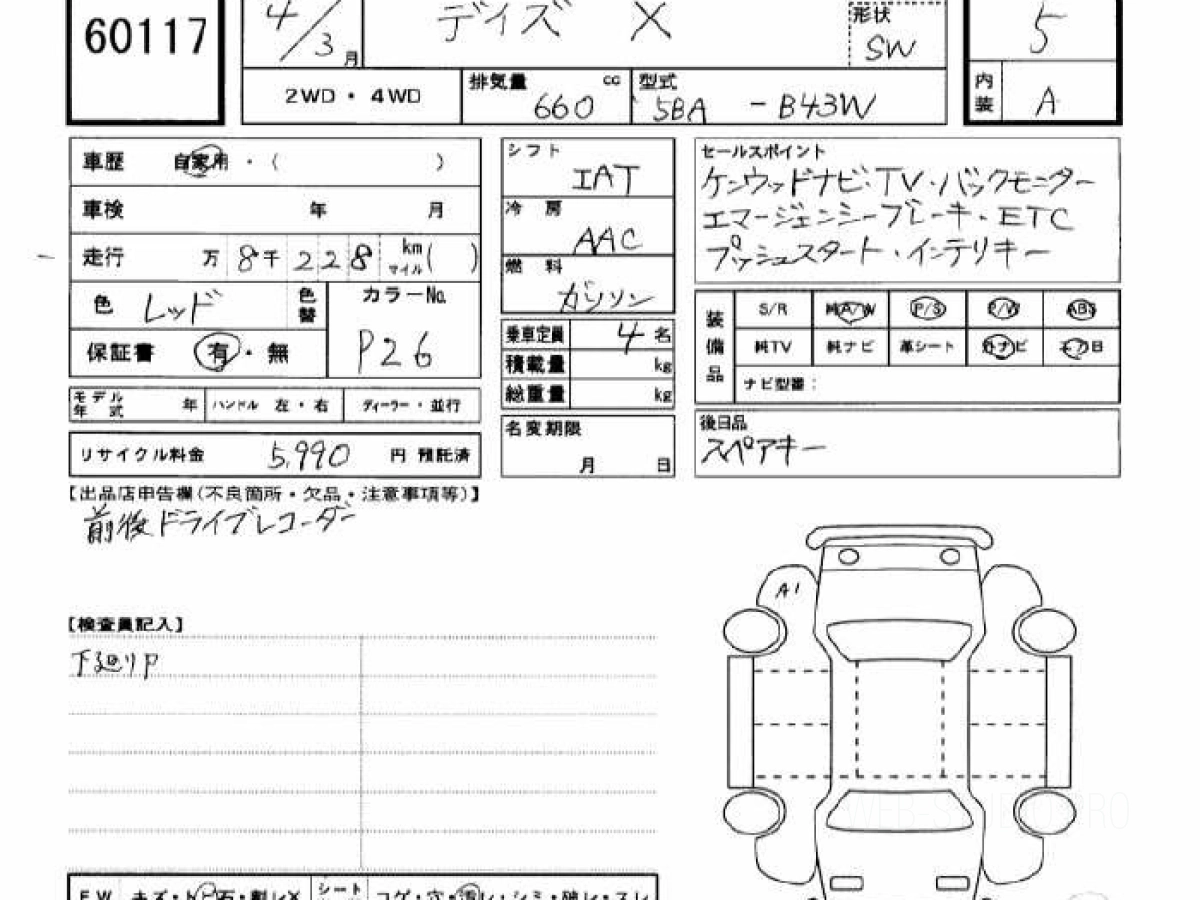 60117
4/3月
デイズ X
形状 SW
5
2WD・4WD
排気量 cc 660
型式 5BA - B43W
内装 A
車歴 自家用・( )
車検 年 月
走行 万 8千 228 km マイル ( )
色 レッド 色替
カラーNo. P26
保証書 有・無
モデル年式 年 ハンドル 左・右 ディーラー・並行
リサイクル料金 5,990 円 預託済
シフト IAT
冷房 AAC
燃料 ガソリン
乗車定員 4 名
積載量 kg
総重量 kg
名変期限 月 日
セールスポイント
ケンウッドナビ・TV・バックモニター
エマージェンシーブレーキ・ETC
プッシュスタート・インテリキー
装備品
S/R 純A/W P/S P/W ABS
純TV 純ナビ 革シート 外ナビ エアB
ナビ型番:
後日品
スペアキー
【出品店申告欄(不良箇所・欠品・注意事項等)】
前後ドライブレコーダー
【検査員記入】
下廻りP
A1
WEB-S PRO
FW キズ・トビ石・割レX シート コゲ・穴・汚レ・シミ・破レ・スレ